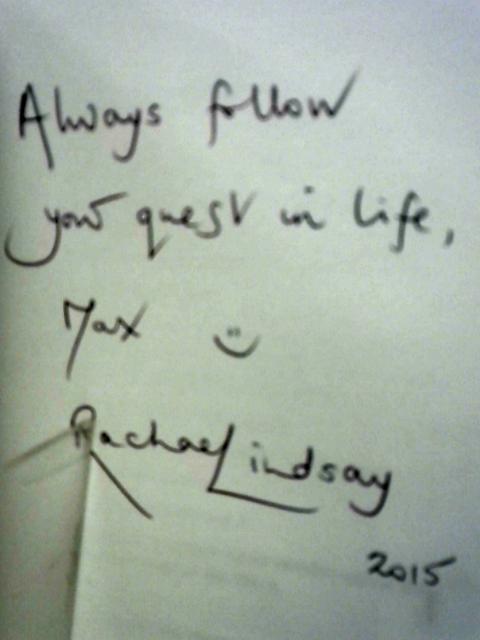 Always follow
your quest in life,
Max
Rachael Lindsay
2015